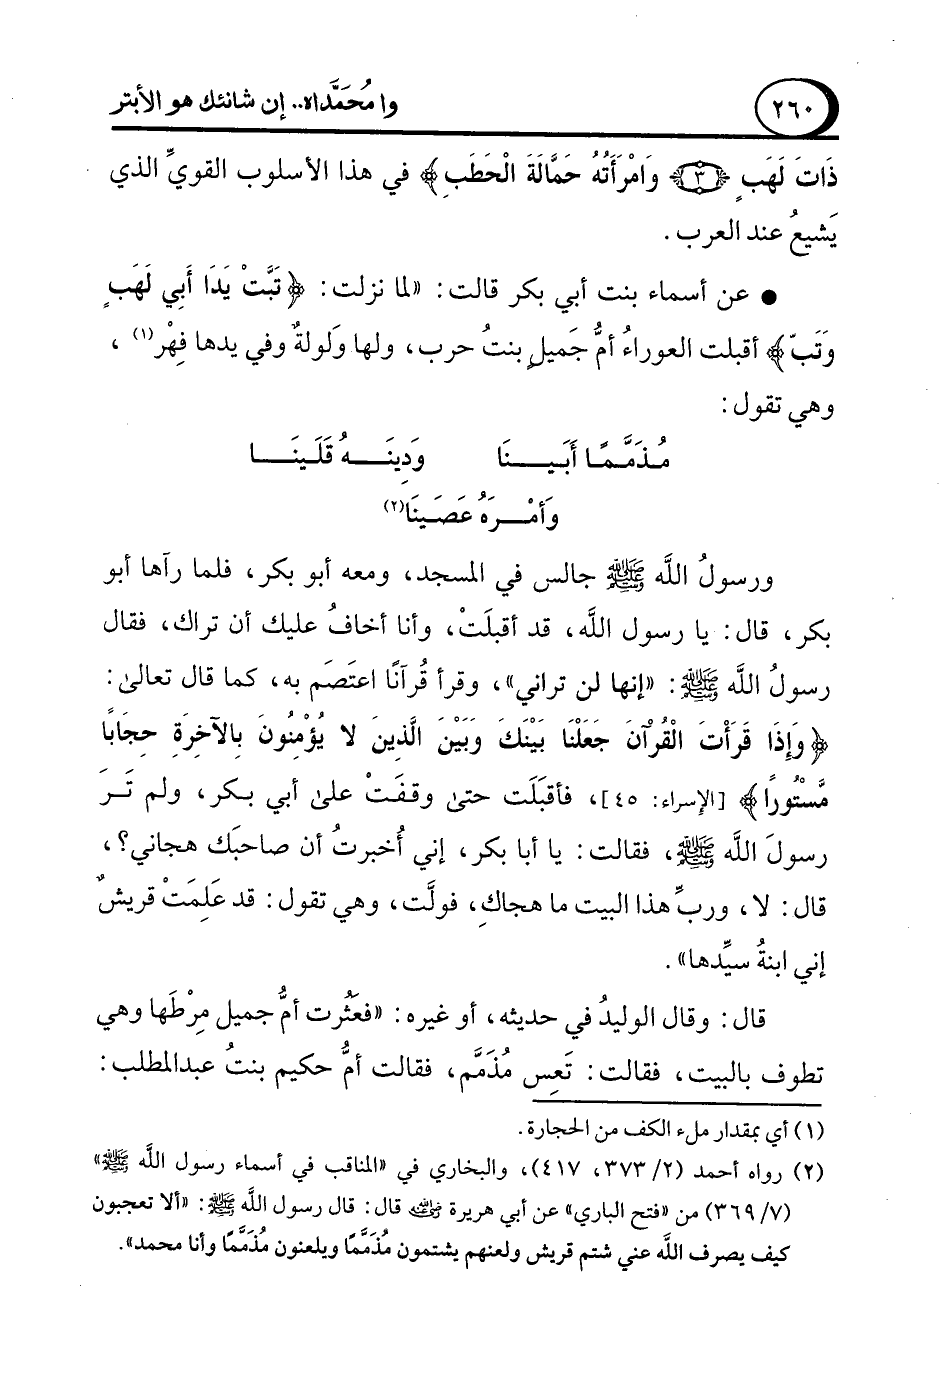 ٢٦٠
وا مُحَمَّداه.. إن شانئك هو الأبتر
ذَاتَ لَهَبٍ ﴿٣﴾ وَامْرَأَتُهُ حَمَّالَةَ الْحَطَبِ﴾ في هذا الأسلوب القويِّ الذي
يَشيعُ عند العرب.
● عن أسماء بنت أبي بكر قالت: «لما نزلت: ﴿تَبَّتْ يَدَا أَبِي لَهَبٍ
وَتَبَّ﴾ أقبلت العوراءُ أمُّ جَميلٍ بنتُ حرب، ولها ولولةٌ وفي يدها فِهْر(١)،
وهي تقول:
مُـذَمَّـمًـا أَبَـيـنَـا وَدِينَـهُ قَلَـينَـا
وَأَمْـرَهُ عَصَـينَا(٢)
ورسولُ اللَّه ﷺ جالس في المسجد، ومعه أبو بكر، فلما رآها أبو
بكر، قال: يا رسول اللَّه، قد أقبلَتْ، وأنا أخافُ عليك أن تراك، فقال
رسولُ اللَّه ﷺ: «إنها لن تراني»، وقرأ قُرآنًا اعتَصَم به، كما قال تعالىٰ:
﴿وَإِذَا قَرَأْتَ الْقُرْآنَ جَعَلْنَا بَيْنَكَ وَبَيْنَ الَّذِينَ لا يُؤْمِنُونَ بِالآخِرَةِ حِجَابًا
مَّسْتُورًا﴾ [الإسراء: ٤٥]، فأقبَلَت حتىٰ وقفَتْ علىٰ أبي بـكر، ولم تَـرَ
رسولَ اللَّه ﷺ، فقالت: يا أبا بكر، إني أُخبرتُ أن صاحبَك هجاني؟،
قال: لا، وربِّ هذا البيت ما هجاكِ، فولَّت، وهي تقول: قد عَلِمَتْ قريشٌ
إني ابنةُ سيِّدها».
قال: وقال الوليدُ في حديثه، أو غيره: «فعَثُرت أمُّ جميل مِرْطَها وهي
تطوف بالبيت، فقالت: تَعِس مُذَمَّم، فقالت أمُّ حكيم بنتُ عبدالمطلب:
(١) أي بمقدار ملء الكف من الحجارة.
(٢) رواه أحمد (٢/ ٣٧٣، ٤١٧)، والبخاري في «المناقب في أسماء رسول اللَّه ﷺ»
(٧/ ٣٦٩) من «فتح الباري» عن أبي هريرة رضي الله عنه قال: قال رسول اللَّه ﷺ: «ألا تعجبون
كيف يصرف اللَّه عني شتم قريش ولعنهم يشتمون مُذَمَّمًا ويلعنون مُذَمَّمًا وأنا محمد».